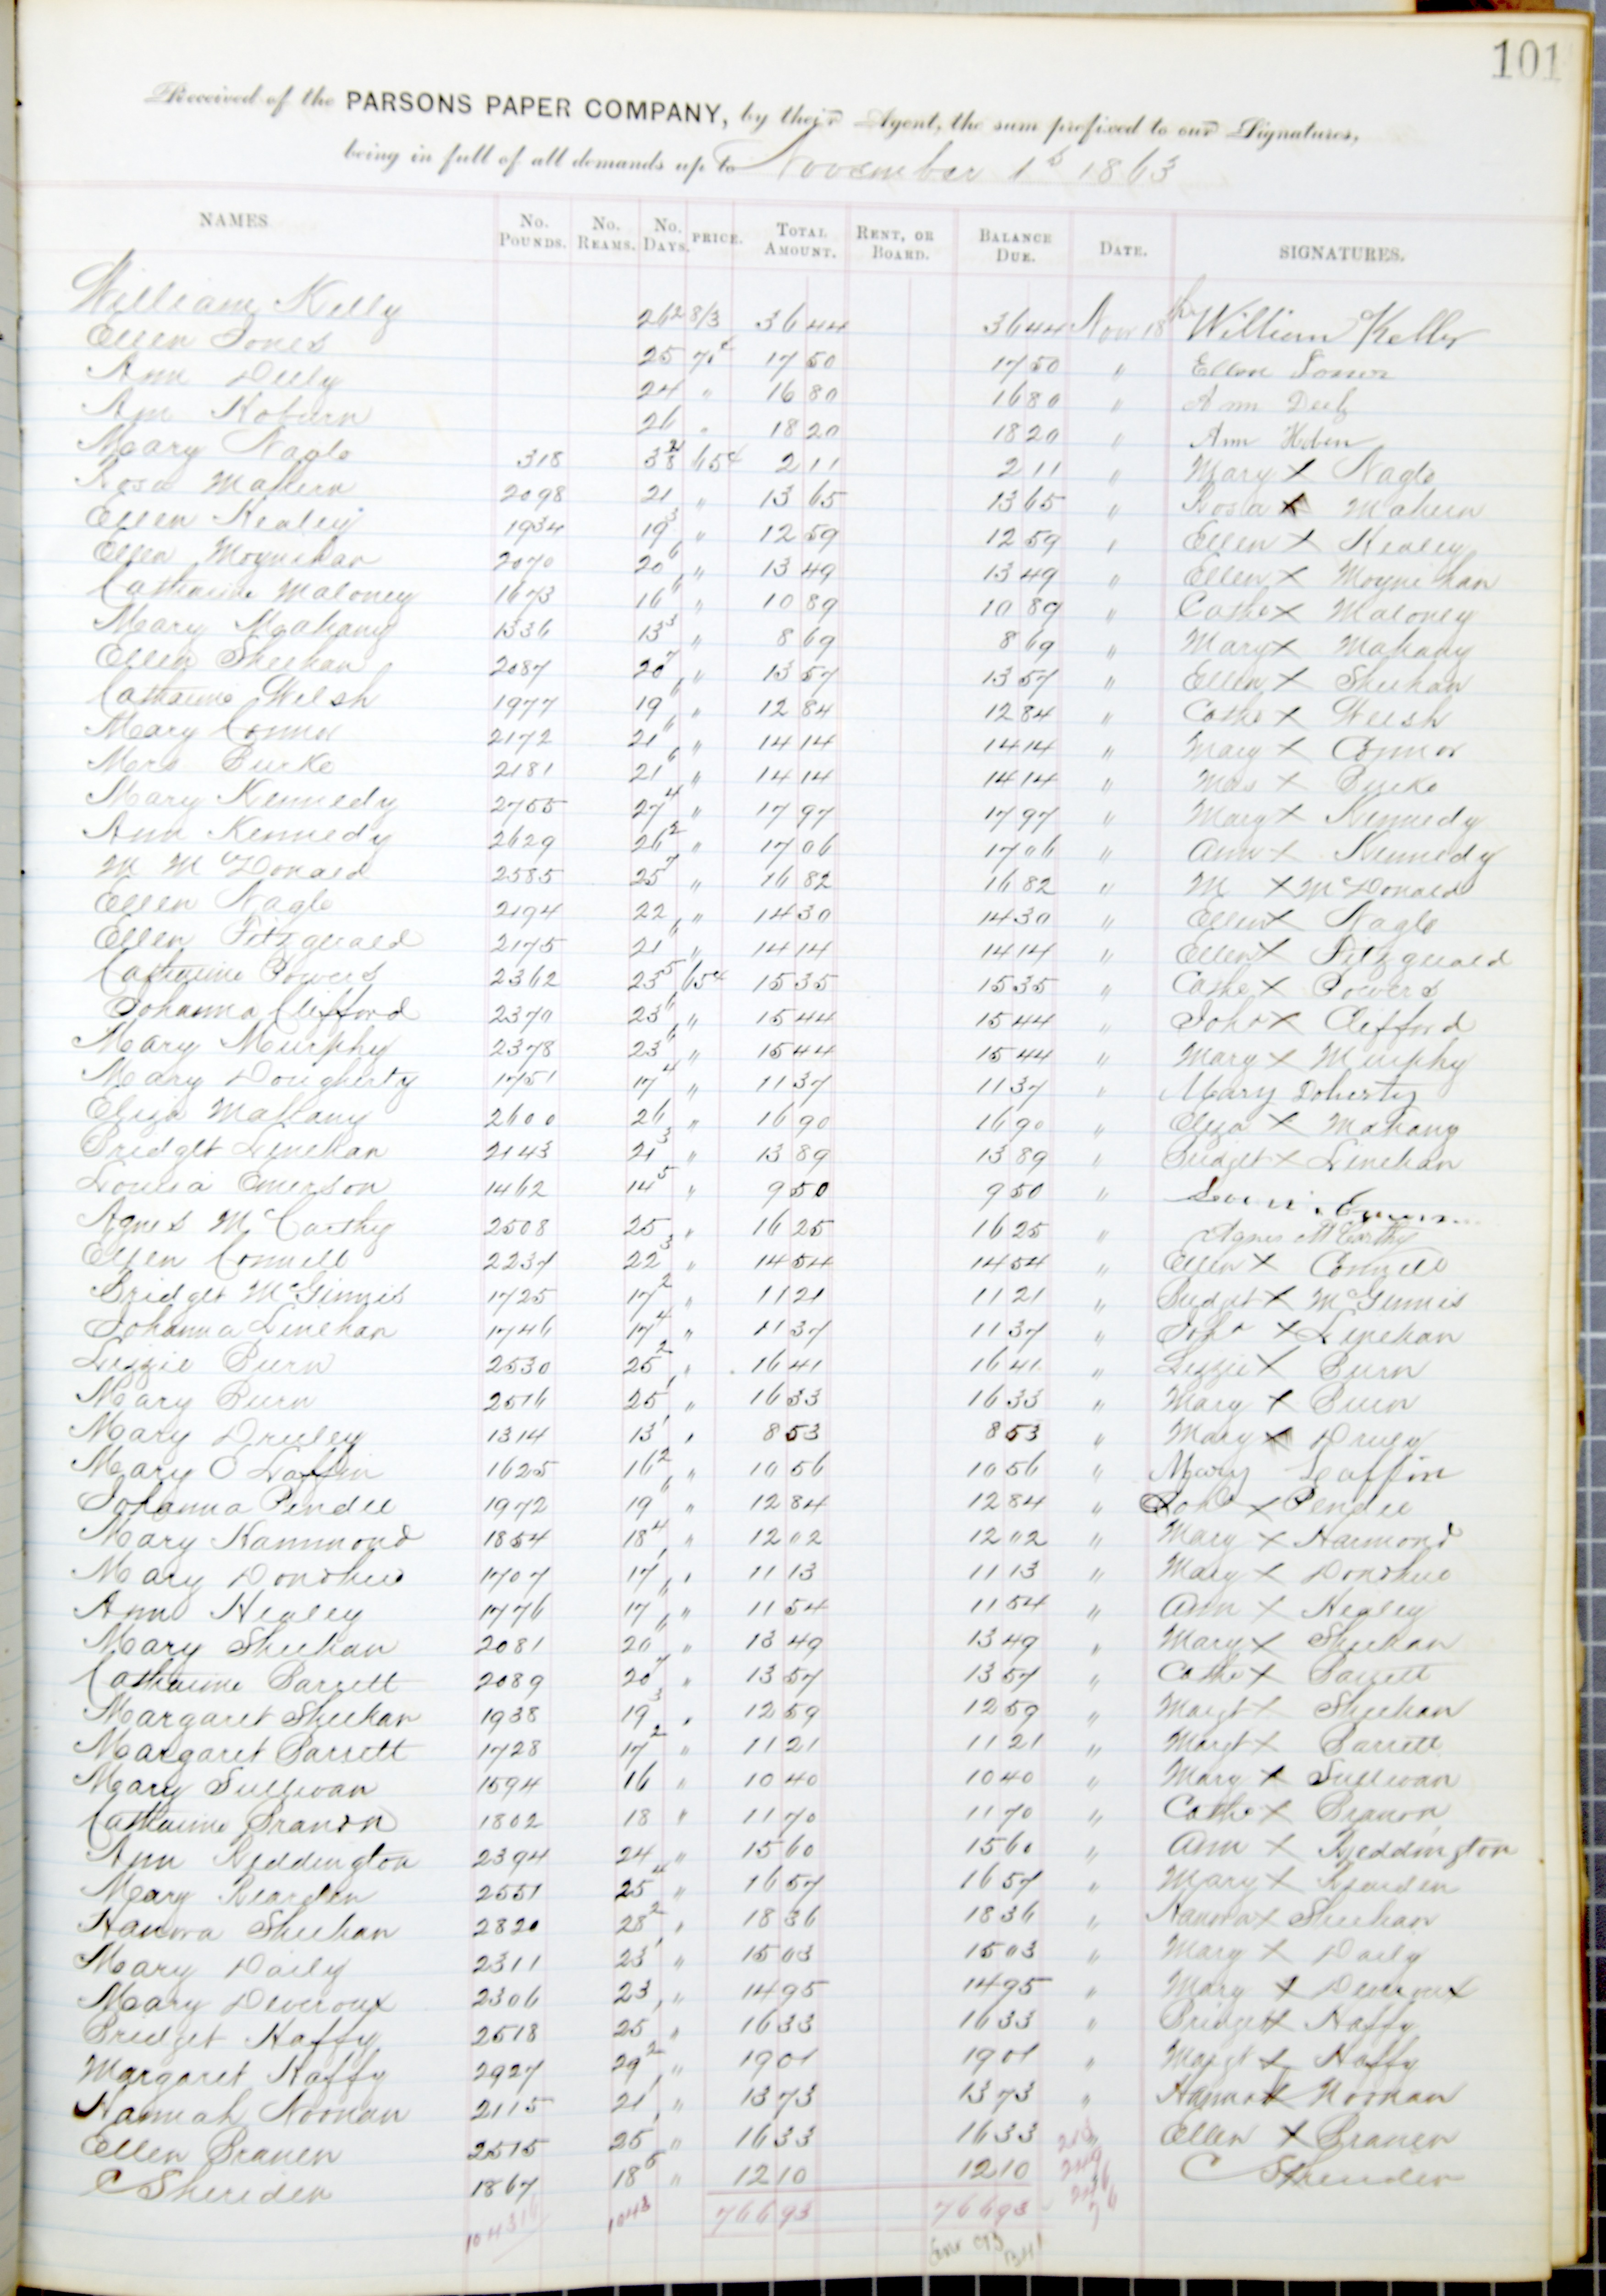 101
Received of the PARSONS PAPER COMPANY, by their Agent, the sum prefixed to our Signatures,
being in full of all demands up to November 1s 1863
NAMES No. POUNDS. No. REAMS. No. DAYS. PRICE. TOTAL AMOUNT. RENT, OR BOARD. BALANCE DUE. DATE. SIGNATURES.
William Kelly 26 2 8/3 36 44 36 44 Nov 18th William Kelly
Ellen Jones 25 70c 17 50 17 50 " Ellen Jones
Ann Deely 24 " 16 80 16 80 " Ann Deely
Ann Hoburn 26 " 18 20 18 20 "  Ann
Mary Nagle 318 3 2/8 65c 2 11 2 11 " Mary X Nagle
Rosa Mahern 2098 21 " 13 65 13 65 " Rosa X Mahern
Ellen Healey 1934 19 3 " 12 59 12 59 " Ellen X Healey
Ellen Moynihan 2070 20 6 " 13 49 13 49 " Ellen X Moynihan
Catharine Maloney 1673 16 6 " 10 89 10 89 " Cathe X Maloney
Mary Mahany 1336 13 3 " 8 69 8 69 " Mary X Mahany
Ellen Sheehan 2087 20 7 " 13 57 13 57 " Ellen X Sheehan
Catharine Welsh 1977 19 6 " 12 84 12 84 " Cathe X Welsh
Mary Connor 2172 21 6 " 14 14 14 14 " Mary X Connor
Mrs Burke 2181 21 6 " 14 14 14 14 " Mrs X Burke
Mary Kennedy 2755 27 4 " 17 97 17 97 " Mary X Kennedy
Ann Kennedy 2629 26 2 " 17 06 17 06 " Ann X Kennedy
M McDonald 2585 25 7 " 16 82 16 82 " M X McDonald
Ellen Nagle 2194 22 " 14 30 14 30 " Ellen X Nagle
Ellen Fitzgerald 2175 21 6 " 14 14 14 14 " Ellen X Fitzgerald
Catharine Powers 2362 23 5 65c 15 35 15 35 " Cathe X Powers
Johanna Clifford 2370 23 6 " 15 44 15 44 " Joha X Clifford
Mary Murphy 2378 23 6 " 15 44 15 44 " Mary X Murphy
Mary Dougherty 1751 17 4 " 11 37 11 37 " Mary Doherty
Eliza Mahany 2600 26 " 16 90 16 90 " Eliza X Mahany
Bridget Linehan 2143 21 3 " 13 89 13 89 " Bridget X Linehan
Louisa Emerson 1462 14 5 " 9 50 9 50 "
Agnes McCarthy 2508 25 " 16 25 16 25 " Agnes McCarthy
Ellen Connell 2237 22 3 " 14 54 14 54 " Ellen X Connell
Bridget McGinnis 1725 17 2 " 11 21 11 21 " Bridget X McGinnis
Johanna Linehan 1746 17 4 " 11 37 11 37 " Joha X Linehan
Lizzie Burn 2530 25 2 " 16 41 16 41 " Lizzie X Burn
Mary Burn 2516 25 1 " 16 33 16 33 " Mary X Burn
Mary Druley 1314 13 1 " 8 53 8 53 " Mary X Druley
Mary O Laffin 1625 16 2 " 10 56 10 56 " Mary Laffin
Johanna Pendee 1972 19 6 " 12 84 12 84 " Joha X Pendee
Mary Hammond 1854 18 4 " 12 02 12 02 " Mary X Hammond
Mary Donohue 1707 17 1 " 11 13 11 13 " Mary X Donohue
Ann Healey 1776 17 6 " 11 54 11 54 " Ann X Healey
Mary Sheehan 2081 20 6 " 13 49 13 49 " Mary X Sheehan
Catharine Barrett 2089 20 7 " 13 57 13 57 " Cathe X Barrett
Margaret Sheehan 1938 19 3 " 12 59 12 59 " Margt X Sheehan
Margaret Barrett 1728 17 2 " 11 21 11 21 " Margt X Barrett
Mary Sullivan 1594 16 " 10 40 10 40 " Mary X Sullivan
Catharine Branon 1802 18 " 11 70 11 70 " Cathe X Branon
Ann Reddington 2394 24 " 15 60 15 60 " Ann X Reddington
Mary Rearden 2551 25 4 " 16 57 16 57 " Mary X Rearden
Hanora Sheehan 2820 28 2 " 18 36 18 36 " Hanora X Sheehan
Mary Daily 2311 23 1 " 15 03 15 03 " Mary X Daily
Mary Deveroux 2306 23 " 14 95 14 95 " Mary X Deveroux
Bridget Haffy 2518 25 1 " 16 33 16 33 " Bridget X Haffy
Margaret Haffy 2927 29 2 " 19 01 19 01 " Margt X Haffy
Hannah Noonan 2115 21 1 " 13 73 13 73 " Hannah X Noonan
Ellen Branen 2515 25 1 " 16 33 16 33 " Ellen X Branen
C Sheriden 1867 18 5 " 12 10 12 10 C Sheriden
104316 1043 766 93 766 93